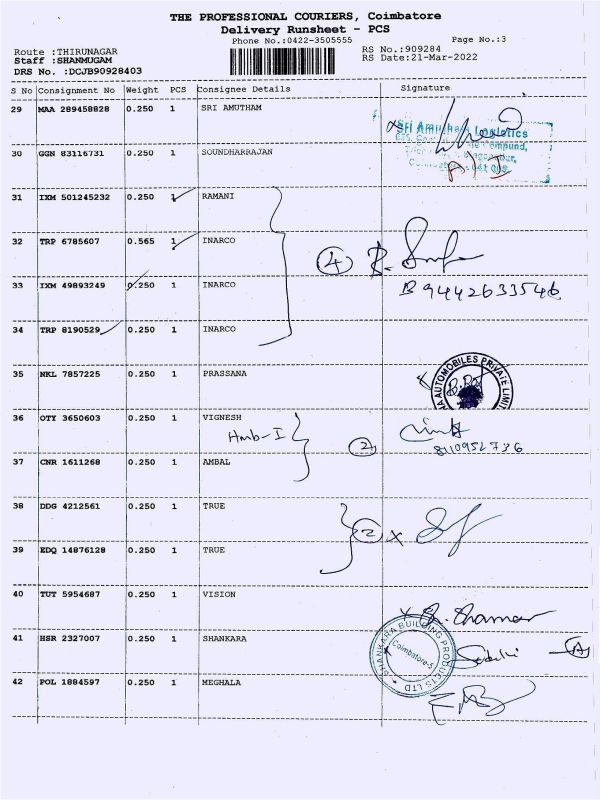 THE PROFESSIONAL COURIERS, Coimbatore
Delivery Runsheet - PCS
Phone No.:0422-3505555 Page No.:3
Route :THIRUNAGAR RS No.:909284
Staff :SHANMUGAM RS Date:21-Mar-2022
DRS No. :DCJB90928403
S No Consignment No Weight PCS Consignee Details Signature
29 MAA 289458828 0.250 1 SRI AMUTHAM
Sri Amutham Logistics
30 GGN 83116731 0.250 1 SOUNDHARRAJAN
31 IXM 501245232 0.250 1 RAMANI
32 TRP 6785607 0.565 1 INARCO
4
33 IXM 49893249 0.250 1 INARCO
9442633546
34 TRP 8190529 0.250 1 INARCO
35 NKL 7857225 0.250 1 PRASSANA
AUTOMOBILES PRIVATE LIMIT
36 OTY 3650603 0.250 1 VIGNESH
Hmb-I 2
8110952736
37 CNR 1611268 0.250 1 AMBAL
38 DDG 4212561 0.250 1 TRUE
2 x
39 EDQ 14876128 0.250 1 TRUE
40 TUT 5954687 0.250 1 VISION
41 HSR 2327007 0.250 1 SHANKARA
SHANKARA BUILDING PRODUCTS LTD
Coimbatore-5
42 POL 1884597 0.250 1 MEGHALA